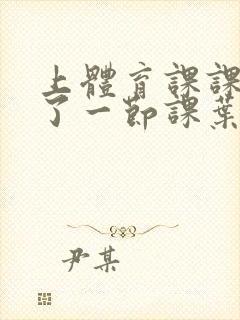 上體育課課
了一節課葉
尹某